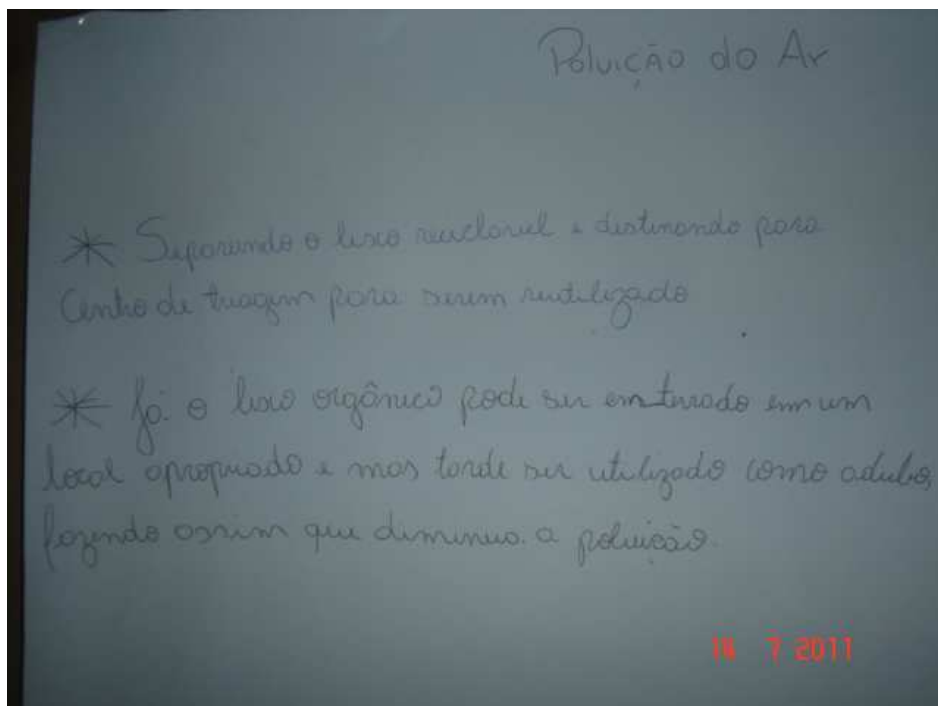 Poluição do Ar
* Separando o lixo reciclavel e destinando para
Centro de triagem para serem reutilizado
* Já o lixo orgânico pode ser enterrado em um
local apropriado e mas tarde ser utilizado como adubo,
fazendo assim que diminua a poluição.
7 2011